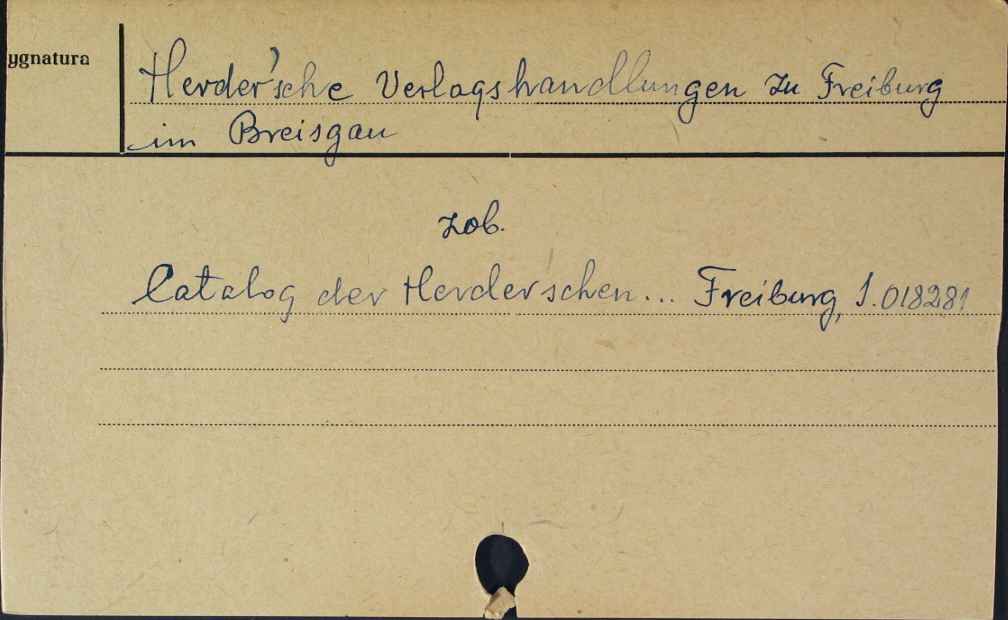 ygnatura
Herder'sche Verlagshandlungen zu Freiburg
im Breisgau
zob.
Catalog der Herder'schen... Freiburg, 1.018281